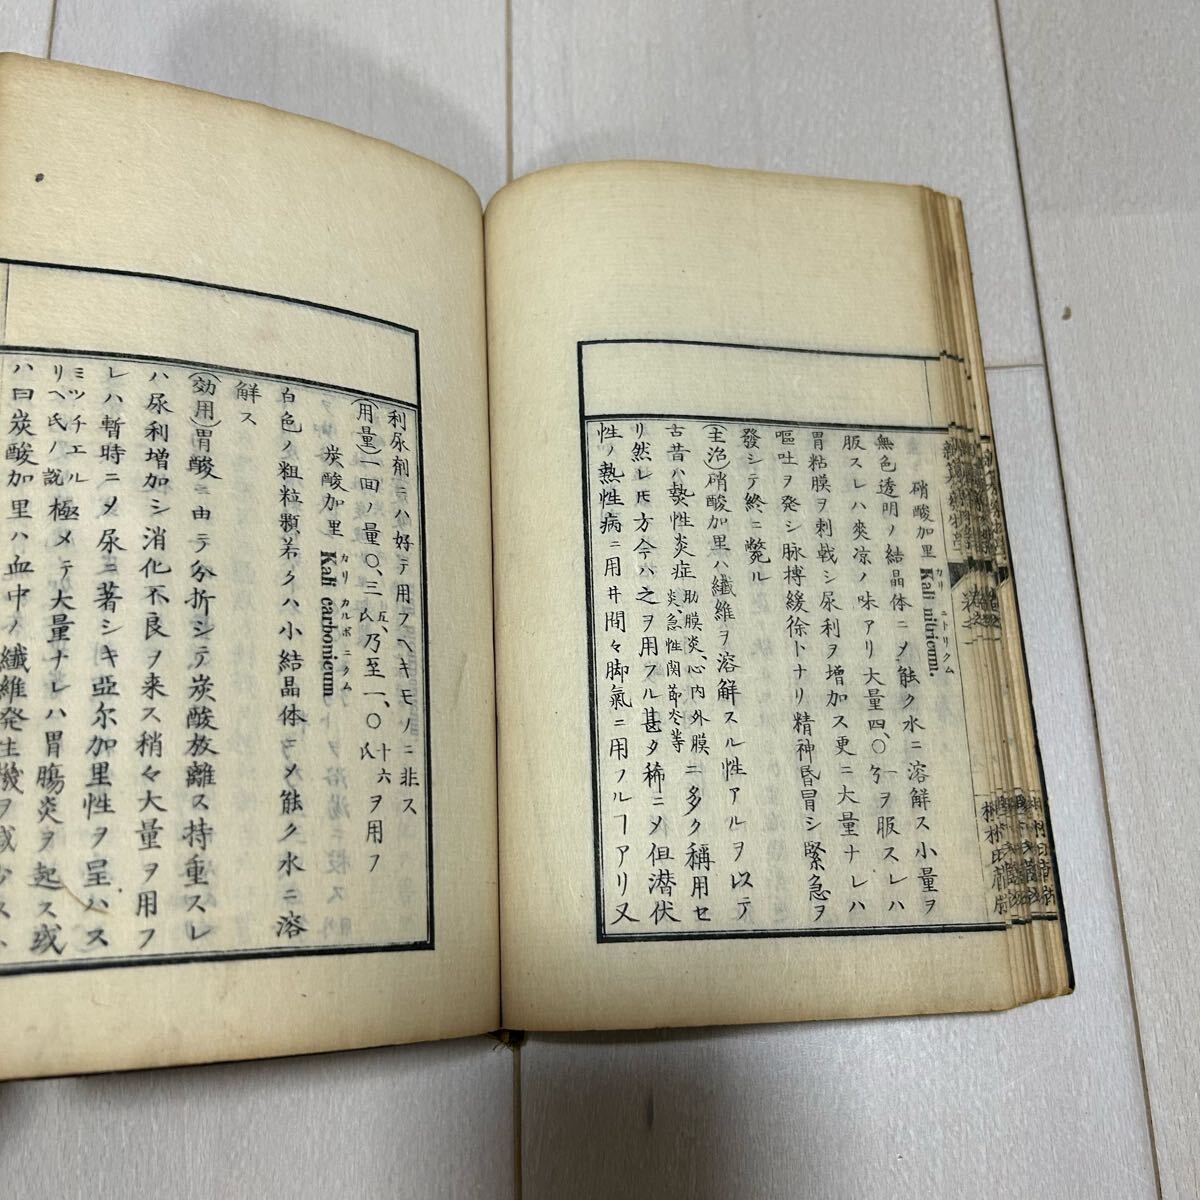 硝酸加里 Kali nitricum.
カリ ニトリクム
無色透明ノ結晶体ニメ能ク水ニ溶解ス小量ヲ
服スレハ爽凉ノ味アリ大量四、〇ヲ服スレハ
胃粘膜ヲ刺戟シ尿利ヲ増加ス更ニ大量ナレハ
嘔吐ヲ発シ脉搏緩徐トナリ精神昏冒シ緊急ヲ
發シテ終ニ斃ル
(主治)硝酸加里ハ纎維ヲ溶解スル性アルヲ以テ
古昔ハ熱性炎症肋膜炎、心内外膜炎、急性関節炎等ニ多ク稱用セ
リ然レ𪜈方今ハ之ヲ用フル甚タ稀ニメ但潜伏
性ノ熱性病ニ用井間々脚氣ニ用フルヿアリ又
利尿劑ニハ好テ用フヘキモノニ非ス
(用量)一回ノ量〇、三五、乃至一、〇十六ヲ用フ
炭酸加里 Kali carbonicum
カリ カルボニクム
白色ノ粗粒顆若クハ小結晶体ニメ能ク水ニ溶
解ス
(効用)胃酸ニ由テ分折シテ炭酸放離ス持重スレ
ハ尿利増加シ消化不良ヲ来ス稍々大量ヲ用フ
レハ暫時ニメ尿ニ著シキ亞尔加里性ヲ呈ハス
ミツチエルリヘ氏ノ説極メテ大量ナレハ胃腸炎ヲ起ス或
ハ曰炭酸加里ハ血中ノ纎維発生機ヲ減少ス